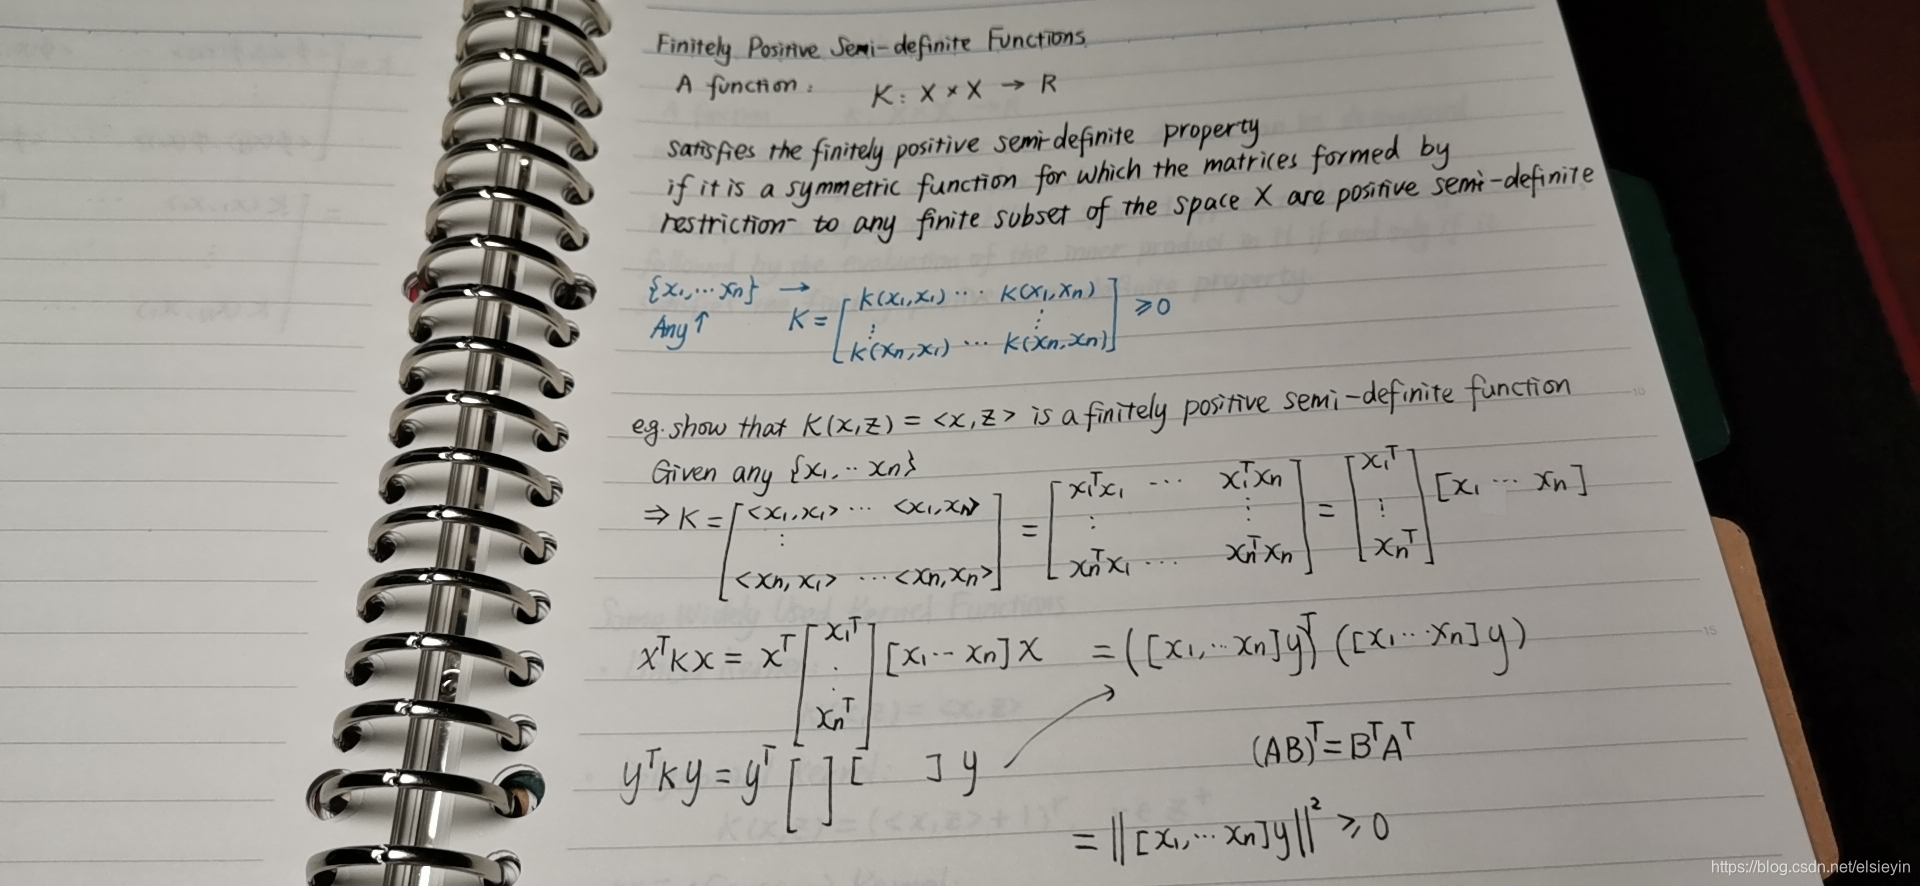 Finitely Positive Semi-definite Functions
A function: K: X × X → R
satisfies the finitely positive semi-definite property
if it is a symmetric function for which the matrices formed by
restriction to any finite subset of the space X are positive semi-definite
{x₁,⋯ xₙ} → K = [ K(x₁,x₁) ⋯ K(x₁,xₙ) ⋮ ⋮ K(xₙ,x₁) ⋯ K(xₙ,xₙ) ] ⩾0
Any ↑
eg. show that K(x,z) = <x,z> is a finitely positive semi-definite function
Given any {x₁,‥ xₙ}
⇒ K = [ <x₁,x₁> ⋯ <x₁,xₙ> ⋮ <xₙ,x₁> ⋯ <xₙ,xₙ> ] = [ x₁ᵀx₁ ⋯ x₁ᵀxₙ ⋮ ⋮ xₙᵀx₁ ⋯ xₙᵀxₙ ] = [ x₁ᵀ ⋮ xₙᵀ ] [x₁ ⋯ xₙ]
xᵀKx = xᵀ [ x₁ᵀ ⋮ xₙᵀ ] [x₁ ‥ xₙ] x = ([x₁,⋯ xₙ]y)ᵀ ([x₁ ⋯ xₙ]y)
yᵀKy = yᵀ [ ] [ ] y
(AB)ᵀ = BᵀAᵀ
= ||[x₁,⋯ xₙ]y||² ⩾ 0
10
15
https://blog.csdn.net/elsieyin